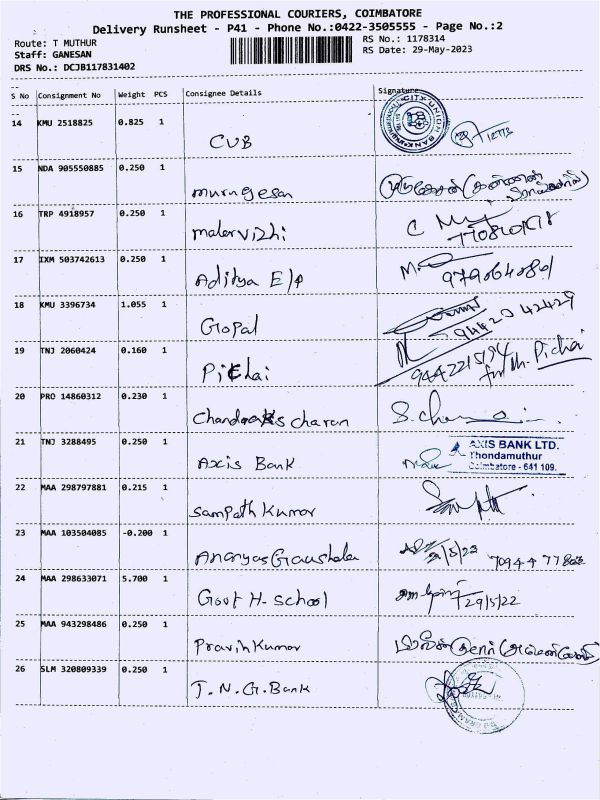 THE PROFESSIONAL COURIERS, COIMBATORE
Delivery Runsheet - P41 - Phone No.:0422-3505555 - Page No.:2
Route: T MUTHUR
RS No.: 1178314
Staff: GANESAN
RS Date: 29-May-2023
DRS No.: DCJB117831402
S No Consignment No Weight PCS Consignee Details Signature
14 KMU 2518825 0.825 1 CUB
CITY UNION BANK
15 NDA 905550885 0.250 1 murugesan
16 TRP 4918957 0.250 1 malarvizhi
17 IXM 503742613 0.250 1 Aditya E/P
18 KMU 3396734 1.055 1 Gopal
94420 42429
19 TNJ 2060424 0.160 1 Pichai
9442215194 for M. Pichai
20 PRO 14860312 0.230 1 Chandra s charan
21 TNJ 3288495 0.250 1 Axis Bank
AXIS BANK LTD.
Thondamuthur
Coimbatore - 641 109.
22 MAA 298797881 0.215 1 Sampath Kumar
23 MAA 103504085 -0.200 1 Ananyas Gaushala
29/5/22
24 MAA 298633071 5.700 1 Govt H-School
29/5/22
25 MAA 943298486 0.250 1 Pravin Kumar
26 SLM 320809339 0.250 1 T.N.G.Bank